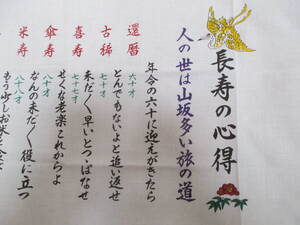 長寿の心得
人の世は山坂多い旅の道
年令の六十に迎えがきたら
還暦 六十才 とんでもないよと追い返せ
古稀 七十才 未だ〱早いとつゝぱなせ
喜寿 七十七才 せくな老楽これからよ
傘寿 八十才 なんの未だ〱役に立つ
米寿 八十八才 もう少しお米を